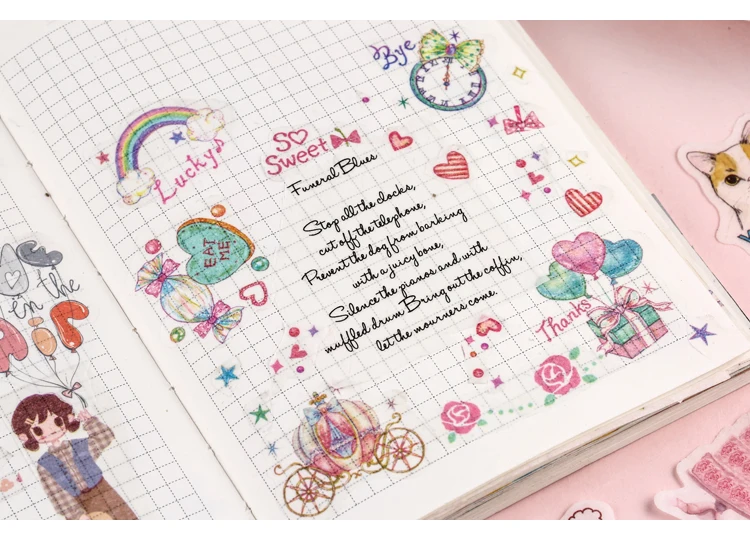 Bye
Lucky
So
Sweet
Funeral Blues
Stop all the clocks,
cut off the telephone,
Prevent the dog from barking
with a juicy bone,
Silence the pianos and with
muffled drum Bring out the coffin,
let the mourners come.
EAT
ME
Thanks
in the